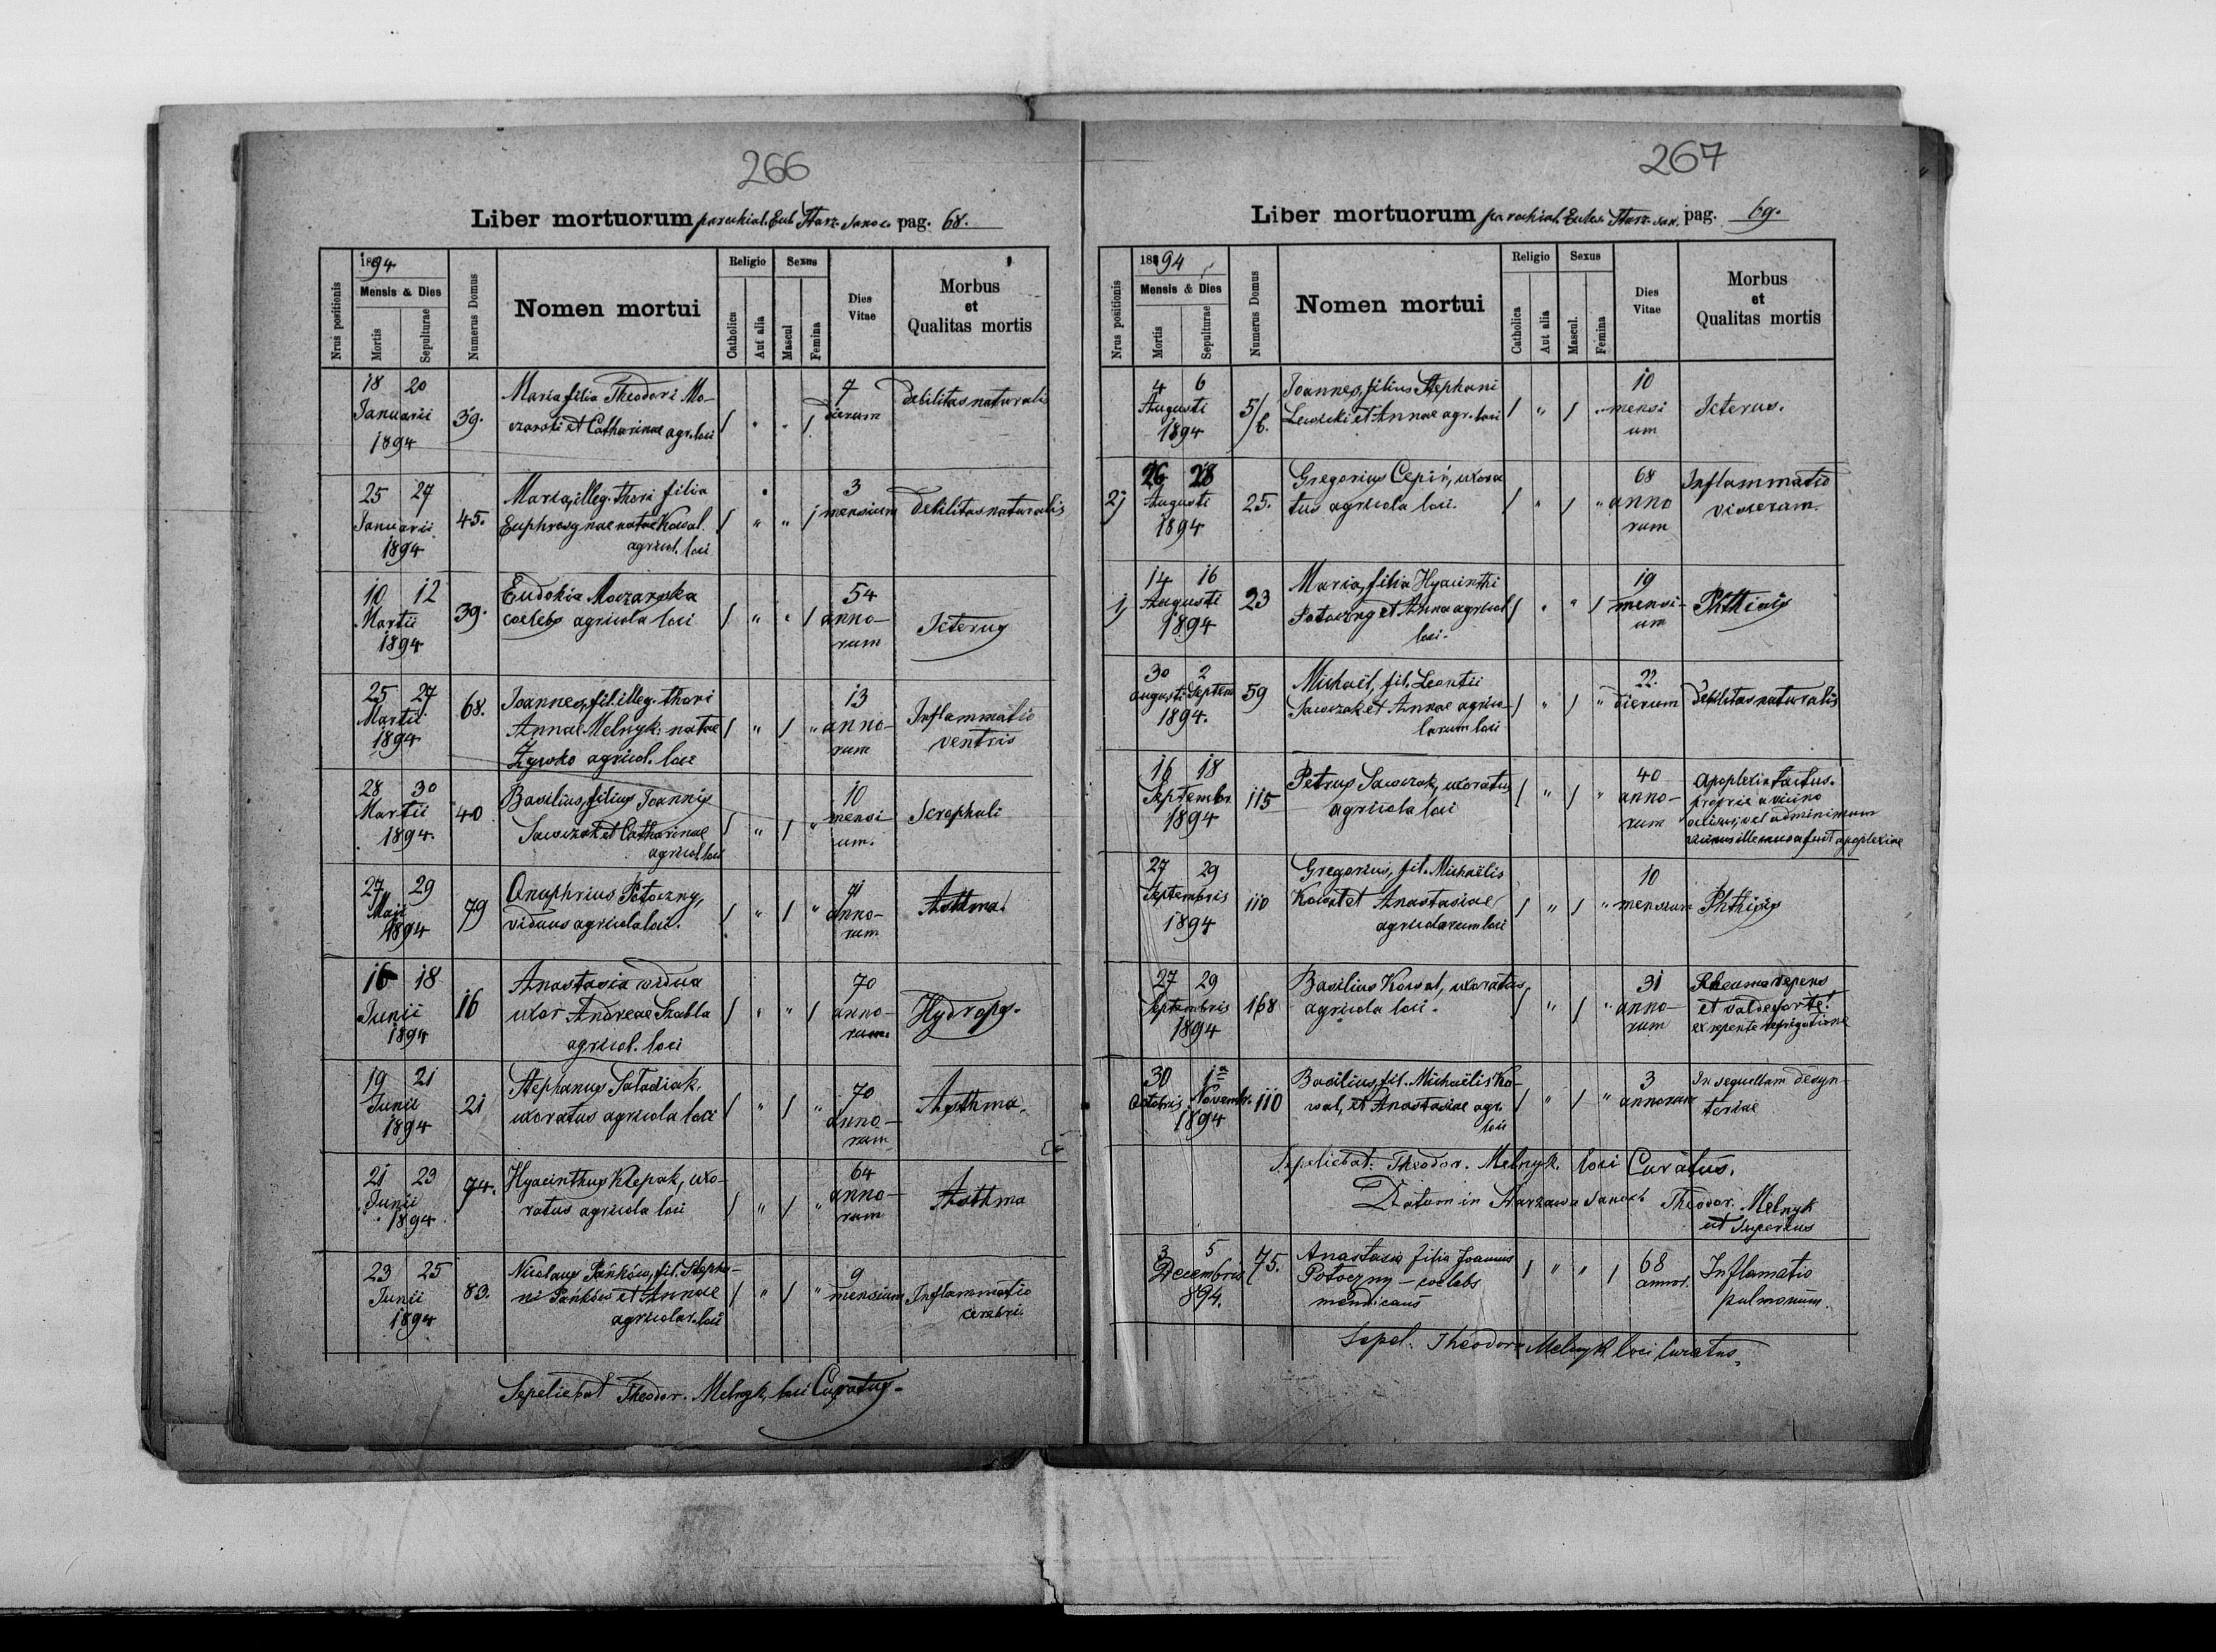 266
Liber mortuorum parochial. Eccl. Starz. Sanoc. pag. 68.
1894
Nrus positionis
Mensis & Dies
Mortis
Sepulturae
Numerus Domus
Nomen mortui
Religio
Catholica
Aut alia
Sexus
Mascul
Femina
Dies Vitae
Morbus
et
Qualitas mortis
18 20 Januarii 1894 39. Maria filia Theodori Mo-
czarski et Catharinae agr. loci
7 dierum Debilitas naturalis
25 27 Januarii 1894 45. Maria, illeg. thori filia
Euphrosynae natae Kowal.
agricol. loci
3 mensium Debilitas naturalis
10 12 Martii 1894 39. Eudokia Moczarska
coelebs agricola loci
54 anno-
rum Icterus
25 27 Martii 1894 68. Joannes, fil. illeg. thori
Annae Melnyk, natae
Żywko agricol. loci
13 anno-
rum Inflammatio
ventris
28 30 Martii 1894 40 Basilius, filius Joannis
Sawczak et Catharinae
agricol. loci
10 mensi
um. Scrophuli
27 29 Maji 1894 79 Onuphrius Potoczny,
viduus agricola loci.
anno-
rum Asthma.
16 18 Junii 1894 16 Anastasia vidua
uxor Andreae Szabla
agricol. loci
70 anno-
rum. Hydrops.
19 21 Junii 1894 21 Stephanus Sataдiak,
uxoratus agricola loci
70 anno-
rum Asthma.
21 23 Junii 1894 74. Hyacinthus Klepak, uxo-
ratus agricola loci
64 anno-
rum Asthma
23 25 Junii 1894 83. Nicolaus Pańków, fil. Stepha-
ni Pańków et Annae
agricolar. loci
9 mensium Inflammatio
cerebri.
Sepeliebat Theodor. Melnyk, loci Curatus.
267
Liber mortuorum parochial. Eccles. Starz. San. pag. 69.
1894
Nrus positionis
Mensis & Dies
Mortis
Sepulturae
Numerus Domus
Nomen mortui
Religio
Catholica
Aut alia
Sexus
Mascul.
Femina
Dies Vitae
Morbus
et
Qualitas mortis
4 6 Augusti 1894 5/6. Joannes, filius Stephani
Lewicki et Annae agr. loci
10 mensi
um Icterus.
2) 26 28 Augusti 1894 25. Gregorius Cepiń, uxora
tus agricola loci.
68 anno
rum Inflammatio
viscerum.
1) 14 16 Augusti 1894 23 Maria, filia Hyacinthi
Potoczny et Anna agricol
loci.
19 mensi-
um Phthisis
30 2 Augusti Septem 1894. 59 Michaël, fil. Leontii
Sawczak et Annae agrico-
larum loci
22. dierum Debilitas naturalis
16 18 Septembr. 1894 115 Petrus Sawczak, uxoratus
agricola loci
40 anno-
rum Apoplexia tactus.
proprie a vicino
occisus, vel adminimum
vicinus ille causa fuit apoplexiae
27 29 Septembris 1894 110 Gregorius, fil. Michaëlis
Kowal et Anastasiae
agricolarum loci
10 mensium Phthisis
27 29 Septembris 1894 168 Basilius Kowal, uxoratus,
agricola loci.
31 anno-
rum Rheuma repens
et valde forte!
ex repente refrigatione
30 1ª Octobris Novembr. 1894 110 Basilius, fil. Michaëlis Ko-
wal, et Anastasiae agr.
loci
3 annorum In sequellam desyn-
teriae
Sepeliebat: Theodor. Melnyk. loci Curatus.
Datum in Starzawa Sanoch Theodor. Melnyk
ut Superius
3 5 Decembris 894. 75. Anastasia filia Joannis
Potoczny – coelebs
mendicans
68 annor. Inflamatio
pulmonum.
Sepel. Theodor Melnyk loci Curatus